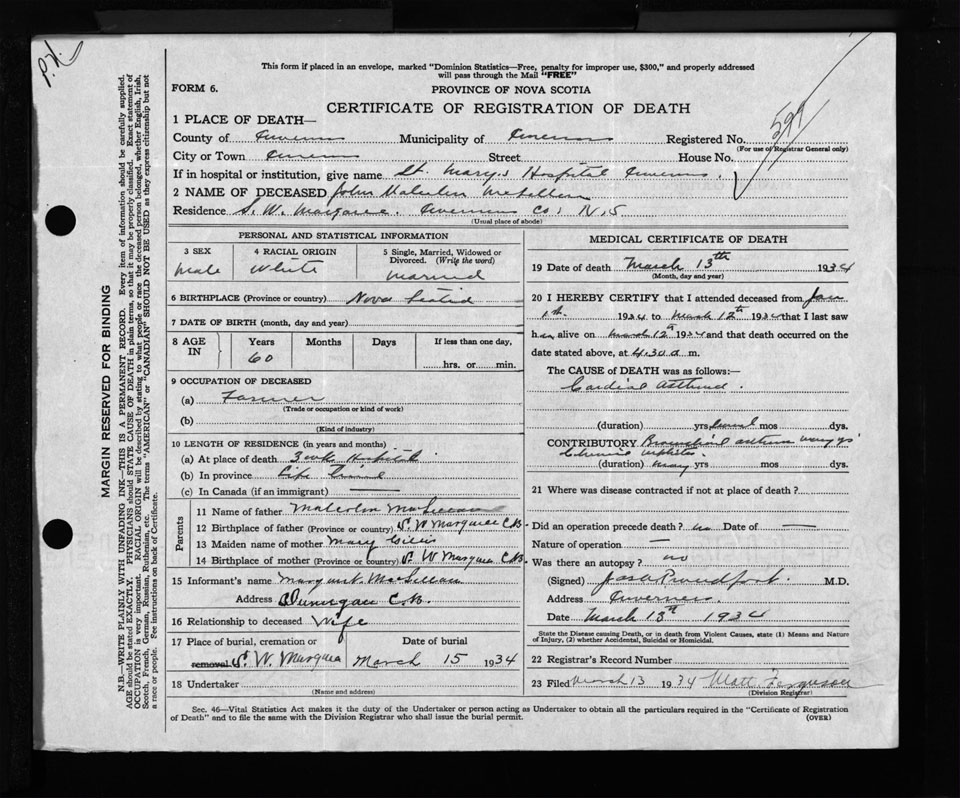 P.V.
This form if placed in an envelope, marked "Dominion Statistics—Free, penalty for improper use, $300," and properly addressed
will pass through the Mail "FREE"
FORM 6.
PROVINCE OF NOVA SCOTIA
CERTIFICATE OF REGISTRATION OF DEATH
599
1 PLACE OF DEATH—
County of Inverness Municipality of Inverness Registered No.
(For use of Registrar General only)
City or Town Inverness Street House No.
If in hospital or institution, give name St. Mary's Hospital Inverness.
2 NAME OF DECEASED John Malcolm McLellan
Residence S. W. Margaree. Inverness Co; N.S
(Usual place of abode)
PERSONAL AND STATISTICAL INFORMATION
3 SEX 4 RACIAL ORIGIN 5 Single, Married, Widowed or
Divorced. (Write the word)
Male White Married
6 BIRTHPLACE (Province or country) Nova Scotia
7 DATE OF BIRTH (month, day and year)
8 AGE IN Years Months Days If less than one day,
60 hrs. or min.
9 OCCUPATION OF DECEASED
(a) Farmer
(Trade or occupation or kind of work)
(b)
(Kind of industry)
10 LENGTH OF RESIDENCE (in years and months)
(a) At place of death 3 wks Hospital
(b) In province Life
(c) In Canada (if an immigrant)
Parents
11 Name of father Malcolm MacLellan
12 Birthplace of father (Province or country) S. W Margaree C.B.
13 Maiden name of mother Mary Gillis
14 Birthplace of mother (Province or country) S. W Margaree C.B.
15 Informant's name Margaret MacLellan
Address Dunvegan C.B.
16 Relationship to deceased Wife
17 Place of burial, cremation or Date of burial
removal S. W. Margaree March 15 1934
18 Undertaker
(Name and address)
MEDICAL CERTIFICATE OF DEATH
19 Date of death March 13th 1934
(Month, day and year)
20 I HEREBY CERTIFY that I attended deceased from Jan
1934 to March 12th 1934 that I last saw
h im alive on March 12th 1934 and that death occurred on the
date stated above, at 4.30 a m.
The CAUSE of DEATH was as follows:—
Cardiac Asthma.
(duration) yrs several mos days.
CONTRIBUTORY Bronchial asthma many yrs
Chronic nephritis.
(duration) many yrs mos dys.
21 Where was disease contracted if not at place of death?
Did an operation precede death? no Date of —
Nature of operation —
Was there an autopsy? no
(Signed) M.D.
Address Inverness
Date March 13th 1934
State the Disease causing Death, or in death from Violent Causes, state (1) Means and Nature
of Injury, (2) whether Accidental, Suicidal or Homicidal.
22 Registrar's Record Number
23 Filed March 13 1934 Matt. Fergusson
(Division Registrar)
Sec. 46—Vital Statistics Act makes it the duty of the Undertaker or person acting as Undertaker to obtain all the particulars required in the "Certificate of Registration
of Death" and to file the same with the Division Registrar who shall issue the burial permit.
(OVER)
MARGIN RESERVED FOR BINDING
N.B.—WRITE PLAINLY WITH UNFADING INK—THIS IS A PERMANENT RECORD. Every item of information should be carefully supplied.
AGE should be stated EXACTLY. PHYSICIANS should STATE CAUSE OF DEATH in plain terms, so that it may be properly classified. Exact statement of
OCCUPATION is very important. RACIAL ORIGIN will be described by stating to what people or race the deceased person belonged, whether English, Irish,
Scotch, French, German, Russian, Ruthenian, etc. The terms "AMERICAN" or "CANADIAN" SHOULD NOT BE USED as they express citizenship but not
a race or people. Fee instructions on back of Certificate.